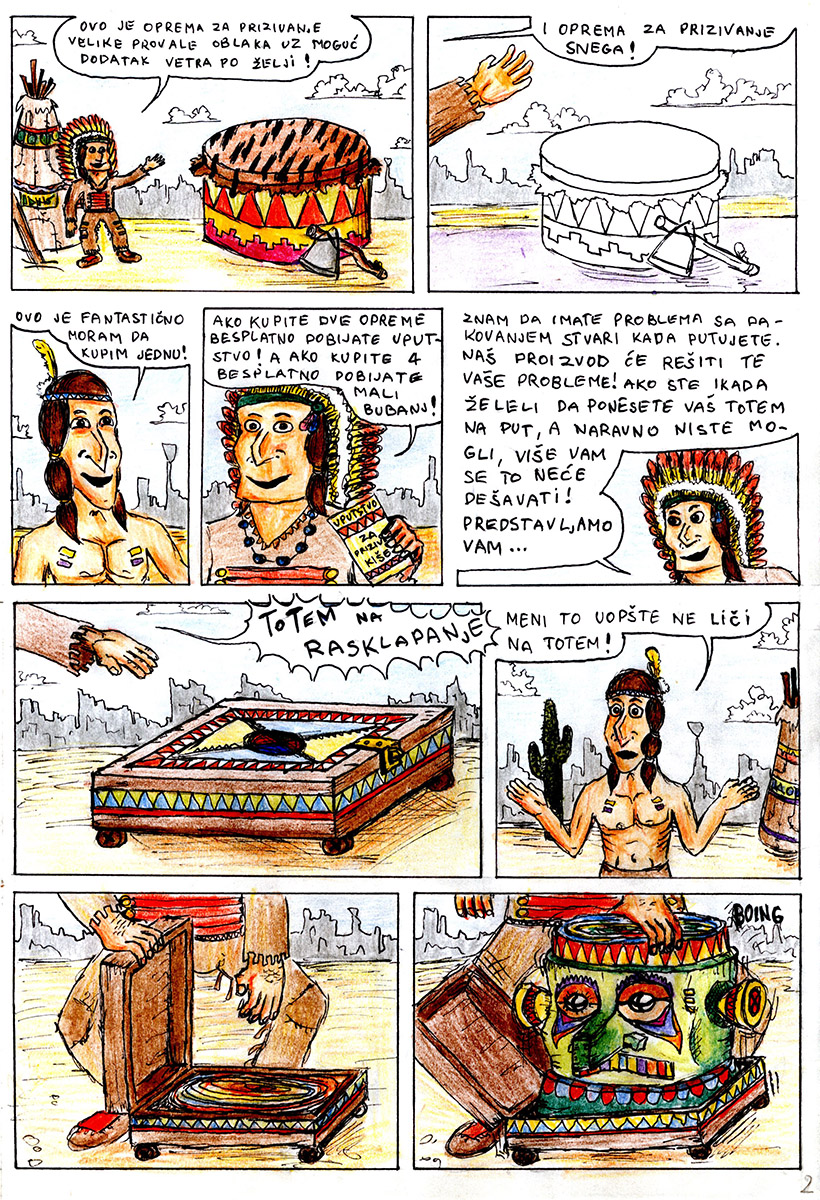 OVO JE OPREMA ZA PRIZIVANJE
VELIKE PROVALE OBLAKA UZ MOGUĆ
DODATAK VETRA PO ŽELJI!
I OPREMA ZA PRIZIVANJE
SNEGA!
OVO JE FANTASTIČNO
MORAM DA
KUPIM JEDNU!
AKO KUPITE DVE OPREME
BESPLATNO DOBIJATE UPUT-
STVO! A AKO KUPITE 4
BESPLATNO DOBIJATE
MALI
BUBANJ!
UPUTSTVO
ZA
PRIZIV
KIŠE
ZNAM DA IMATE PROBLEMA SA PA-
KOVANJEM STVARI KADA PUTUJETE.
NAŠ PROIZVOD ĆE REŠITI TE
VAŠE PROBLEME! AKO STE IKADA
ŽELELI DA PONESETE VAŠ TOTEM
NA PUT, A NARAVNO NISTE MO-
GLI, VIŠE VAM
SE TO NEĆE
DEŠAVATI!
PREDSTAVLJAMO
VAM...
TOTEM NA
RASKLAPANJE
MENI TO UOPŠTE NE LIČI
NA TOTEM!
BOING
2